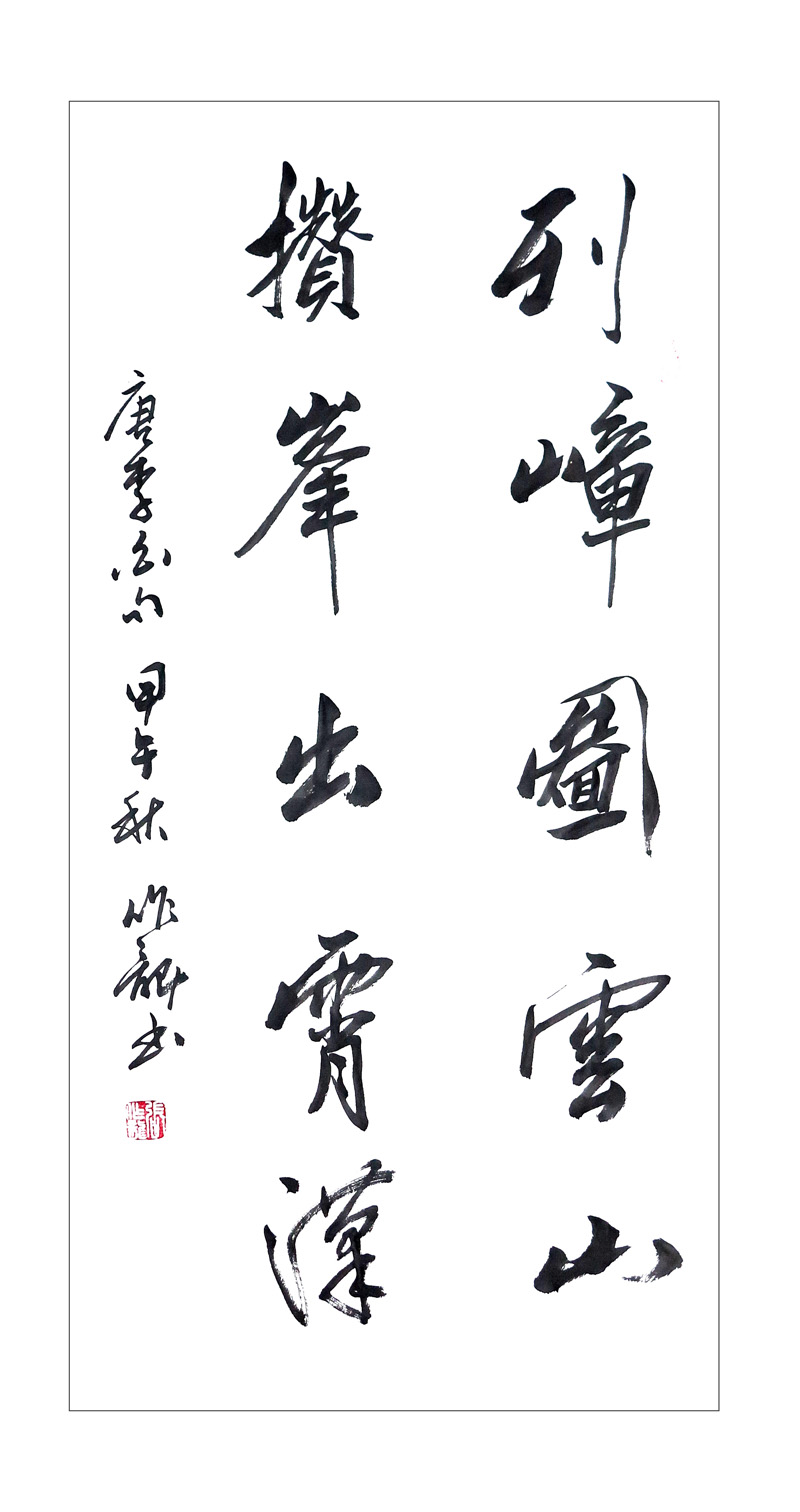 列嶂圖雲山
攢峯出霄漢
唐李白句 甲午秋 作龢书